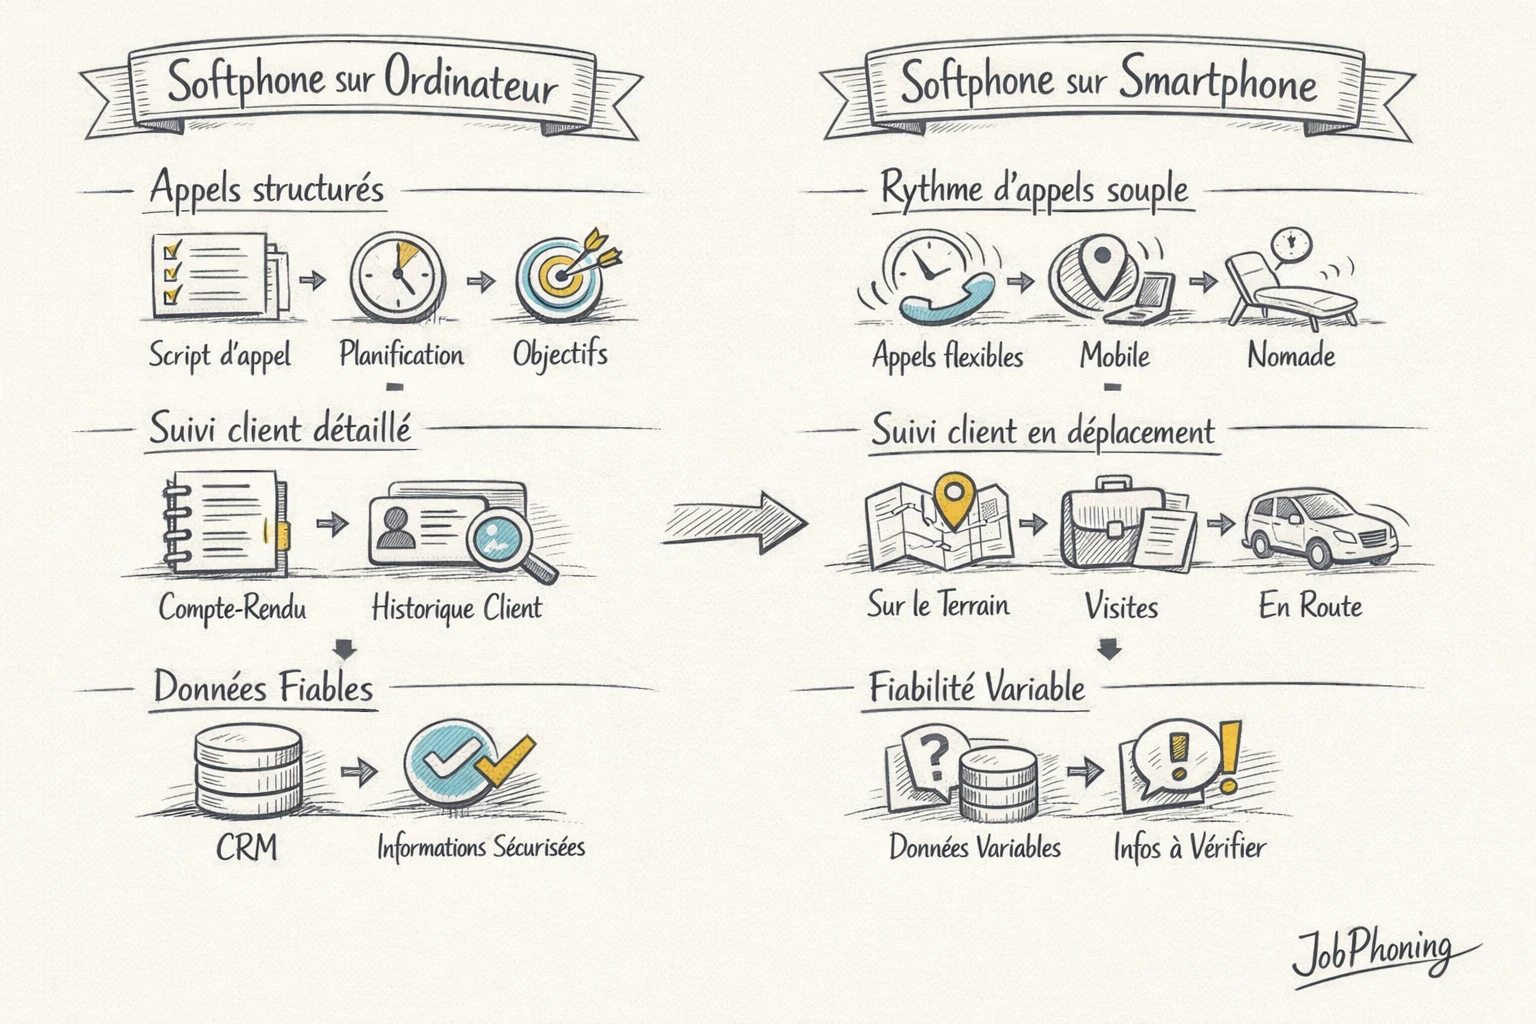 Softphone sur Ordinateur
Appels structurés
Script d'appel
Planification
Objectifs
Suivi client détaillé
Compte-Rendu
Historique Client
Données Fiables
CRM
Informations Sécurisées
Softphone sur Smartphone
Rythme d'appels souple
Appels flexibles
Mobile
Nomade
Suivi client en déplacement
Sur le Terrain
Visites
En Route
Fiabilité Variable
?
!
!
Données Variables
Infos à Vérifier
JobPhoning